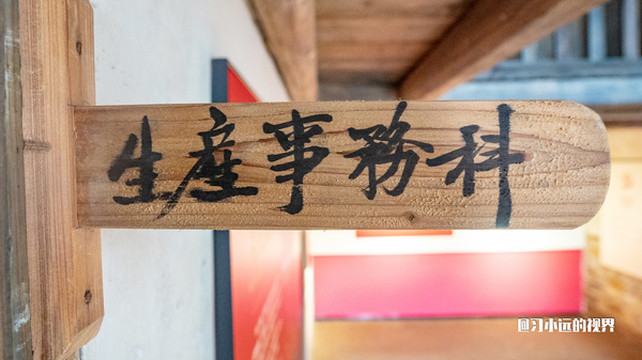 生產事務科
@习小远的视界